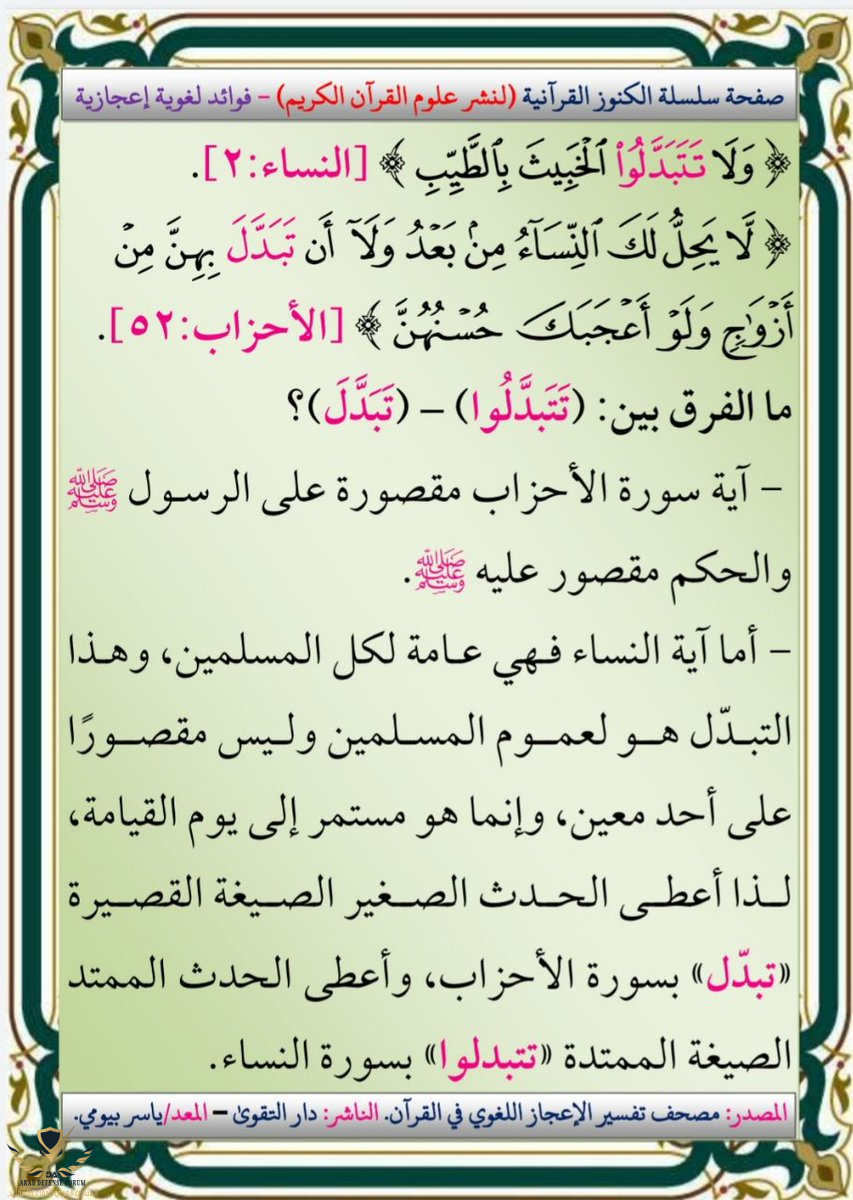 صفحة سلسلة الكنوز القرآنية (لنشر علوم القرآن الكريم) – فوائد لغوية إعجازية
﴿ وَلَا تَتَبَدَّلُوا۟ ٱلْخَبِيثَ بِٱلطَّيِّبِ ﴾ [النساء:٢].
﴿ لَّا يَحِلُّ لَكَ ٱلنِّسَآءُ مِنۢ بَعْدُ وَلَآ أَن تَبَدَّلَ بِهِنَّ مِنْ
أَزْوَٰجٍ وَلَوْ أَعْجَبَكَ حُسْنُهُنَّ ﴾ [الأحزاب:٥٢].
ما الفرق بين: (تَتَبَدَّلُوا) – (تَبَدَّلَ)؟
– آية سورة الأحزاب مقصورة على الرسول ﷺ
والحكم مقصور عليه ﷺ.
– أما آية النساء فهي عامة لكل المسلمين، وهذا
التبدّل هو لعموم المسلمين وليس مقصورًا
على أحد معين، وإنما هو مستمر إلى يوم القيامة،
لذا أعطى الحدث الصغير الصيغة القصيرة
«تبدّل» بسورة الأحزاب، وأعطى الحدث الممتد
الصيغة الممتدة «تتبدلوا» بسورة النساء.
المصدر: مصحف تفسير الإعجاز اللغوي في القرآن. الناشر: دار التقوىٰ – المعد/ياسر بيومي.
ARAB DEFENSE FORUM